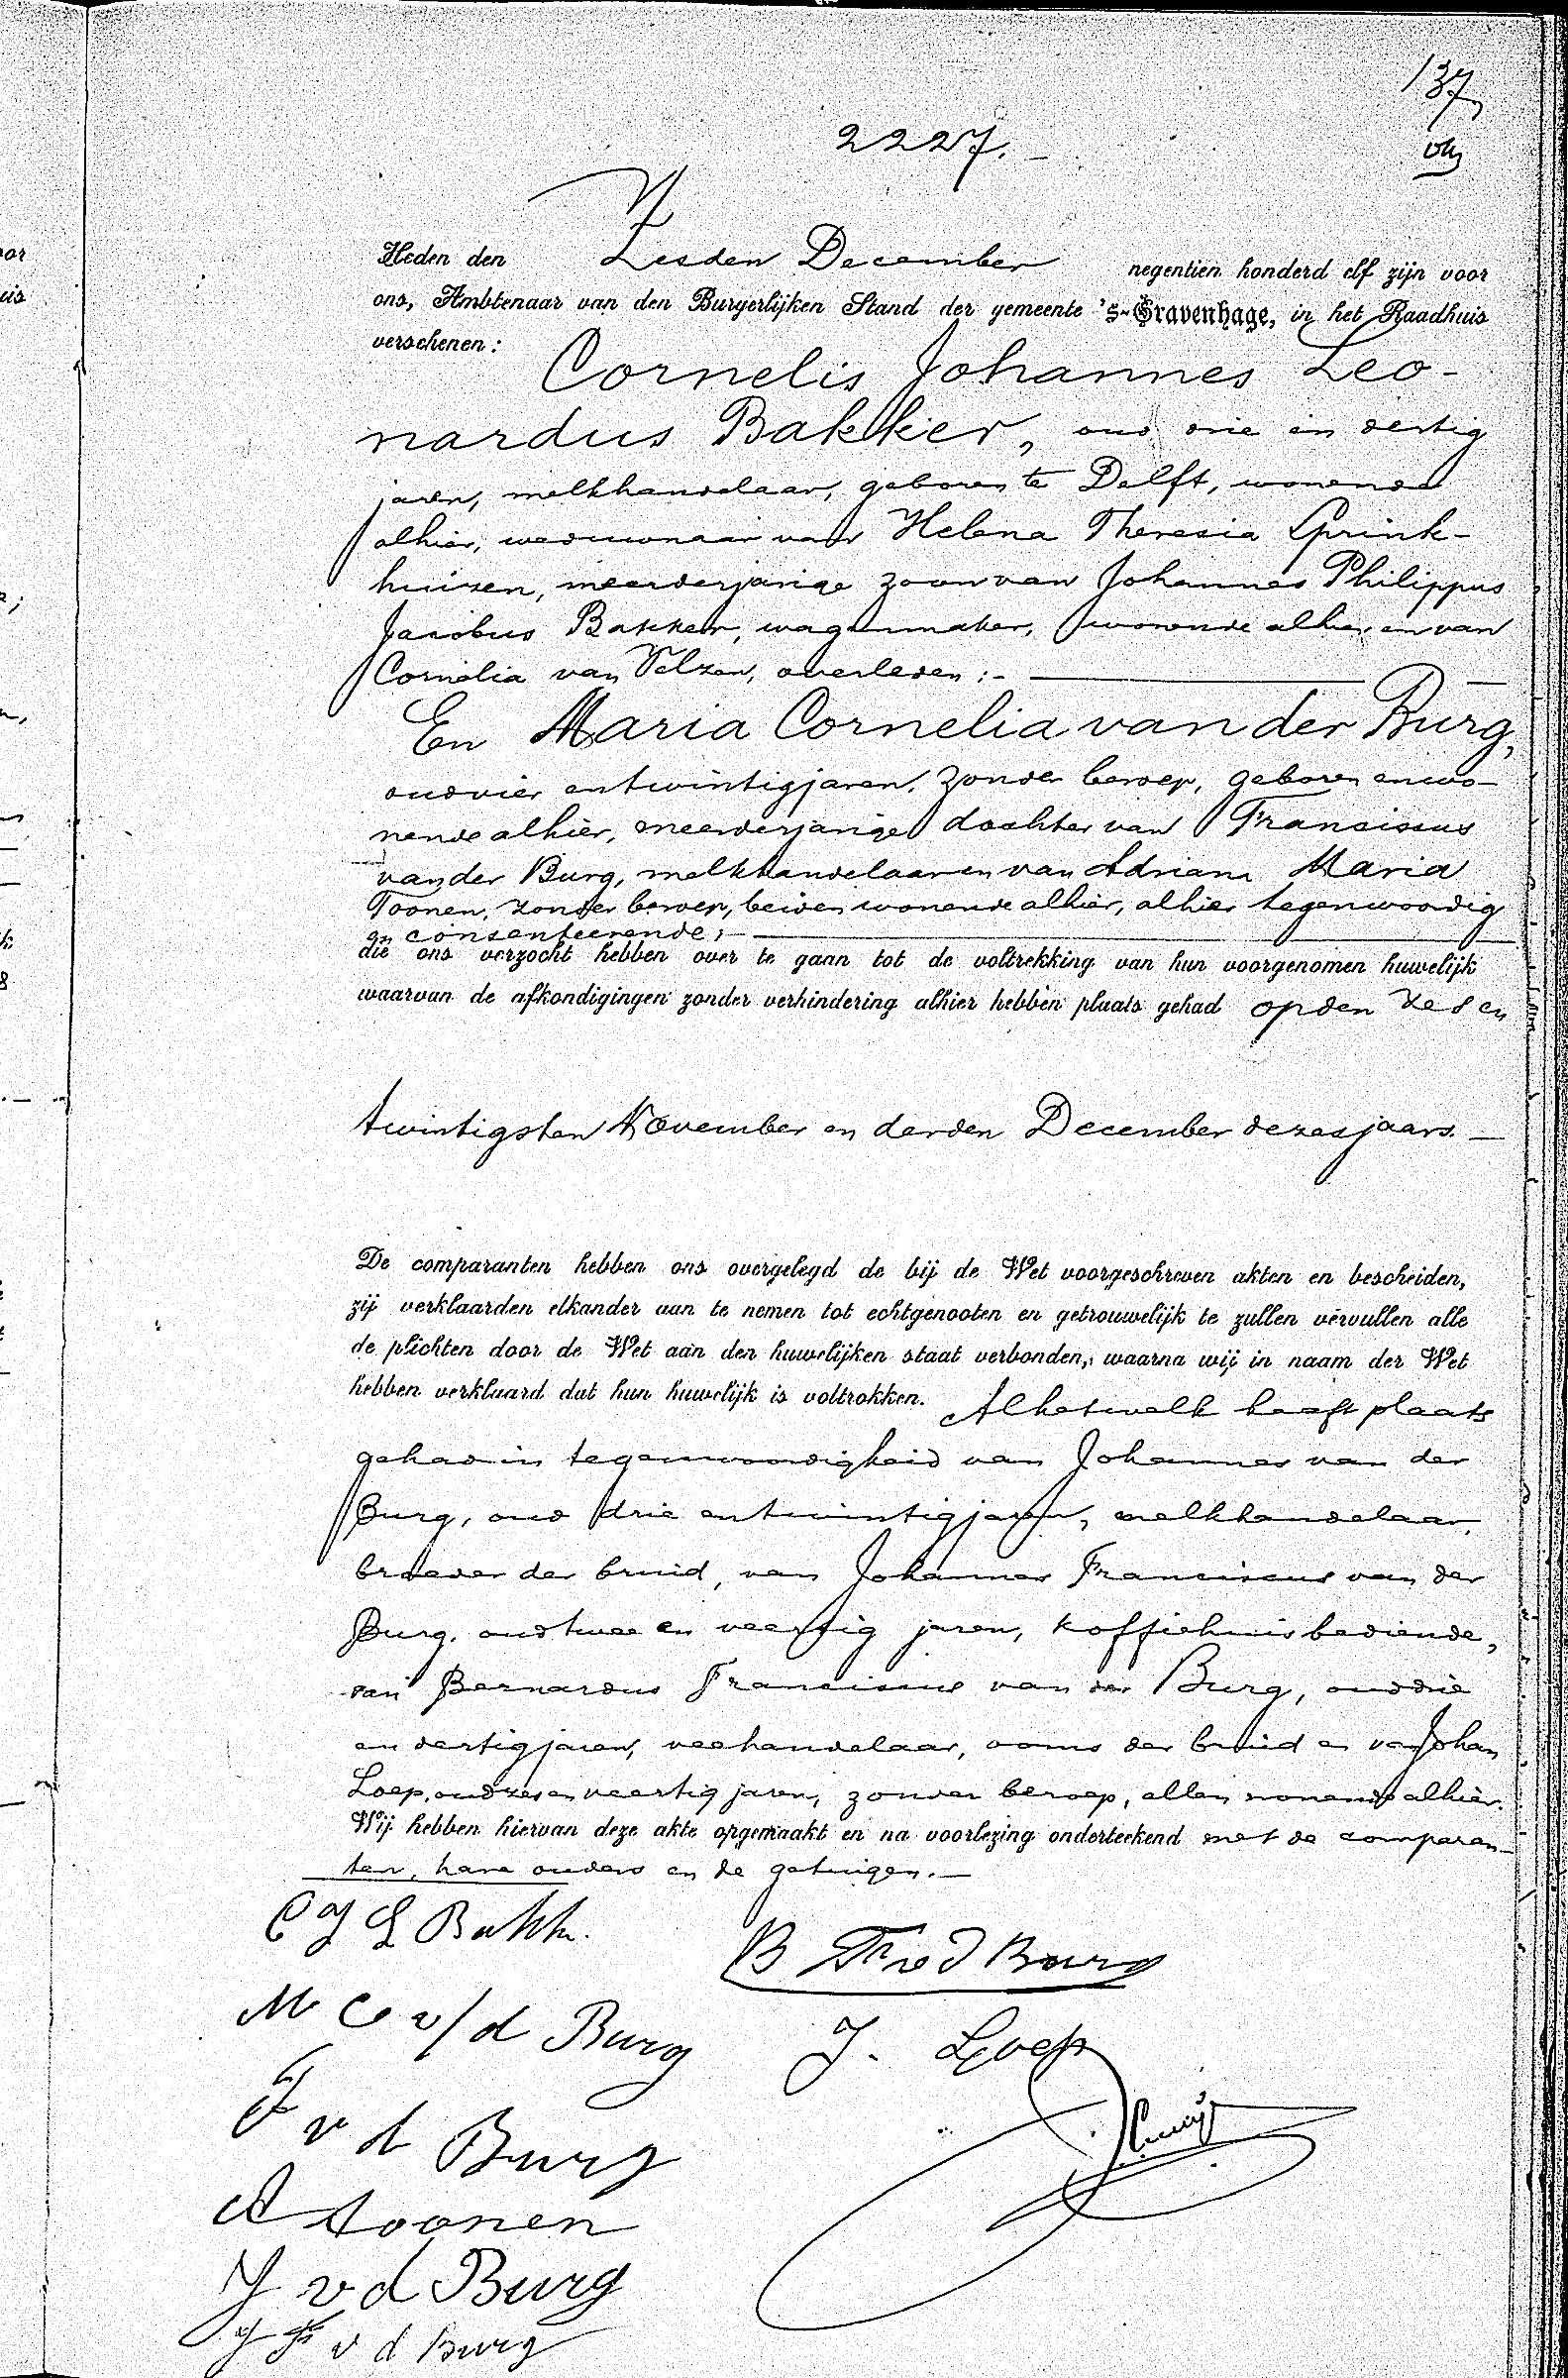 137
2227.
Heden den Zesden December negentien honderd elf zijn voor
ons, Ambtenaar van den Burgerlijken Stand der gemeente 's-Gravenhage, in het Raadhuis
verschenen: Cornelis Johannes Leo-
nardus Bakker, oud drie en dertig
jaren, melkhandelaar, geboren te Delft, wonende
alhier, weduwnaar van Helena Theresia Sprink-
huizen, meerderjarige zoon van Johannes Philippus
Jacobus Bakker, wagenmaker, wonende alhier en van
Cornelia van Velzen, overleden;-
En Maria Cornelia van der Burg,
oud vier en twintig jaren, zonder beroep, geboren en wo-
nende alhier, meerderjarige dochter van Franciscus
van der Burg, melkhandelaar en van Adriana Maria
Toonen, zonder beroep, beiden wonende alhier, alhier tegenwoordig
en consenteerende;
die ons verzocht hebben over te gaan tot de voltrekking van hun voorgenomen huwelijk
waarvan de afkondigingen zonder verhindering alhier hebben plaats gehad op den zes en
twintigsten November en derden December dezes jaars.
De comparanten hebben ons overgelegd de bij de Wet voorgeschreven akten en bescheiden,
zij verklaarden elkander aan te nemen tot echtgenooten en getrouwelijk te zullen vervullen alle
de plichten door de Wet aan den huwelijken staat verbonden, waarna wij in naam der Wet
hebben verklaard dat hun huwelijk is voltrokken. Al hetwelk heeft plaats
gehad in tegenwoordigheid van Johannes van der
Burg, oud drie en twintig jaren, melkhandelaar,
broeder der bruid, van Johannes Franciscus van der
Burg, oud twee en veertig jaren, koffiehuisbediende,
van Bernardus Franciscus van der Burg, oud drie
en dertig jaren, veehandelaar, ooms der bruid en van Johan
Loep, oud zes en veertig jaren, zonder beroep, allen wonende alhier.
Wij hebben hiervan deze akte opgemaakt en na voorlezing onderteekend met de comparan-
ten, hare ouders en de getuigen.
C J L Bakker
B F v d Burg
M C v/d Burg
J. Loep
F v d Burg
A Toonen
J v d Burg
J F v d Burg